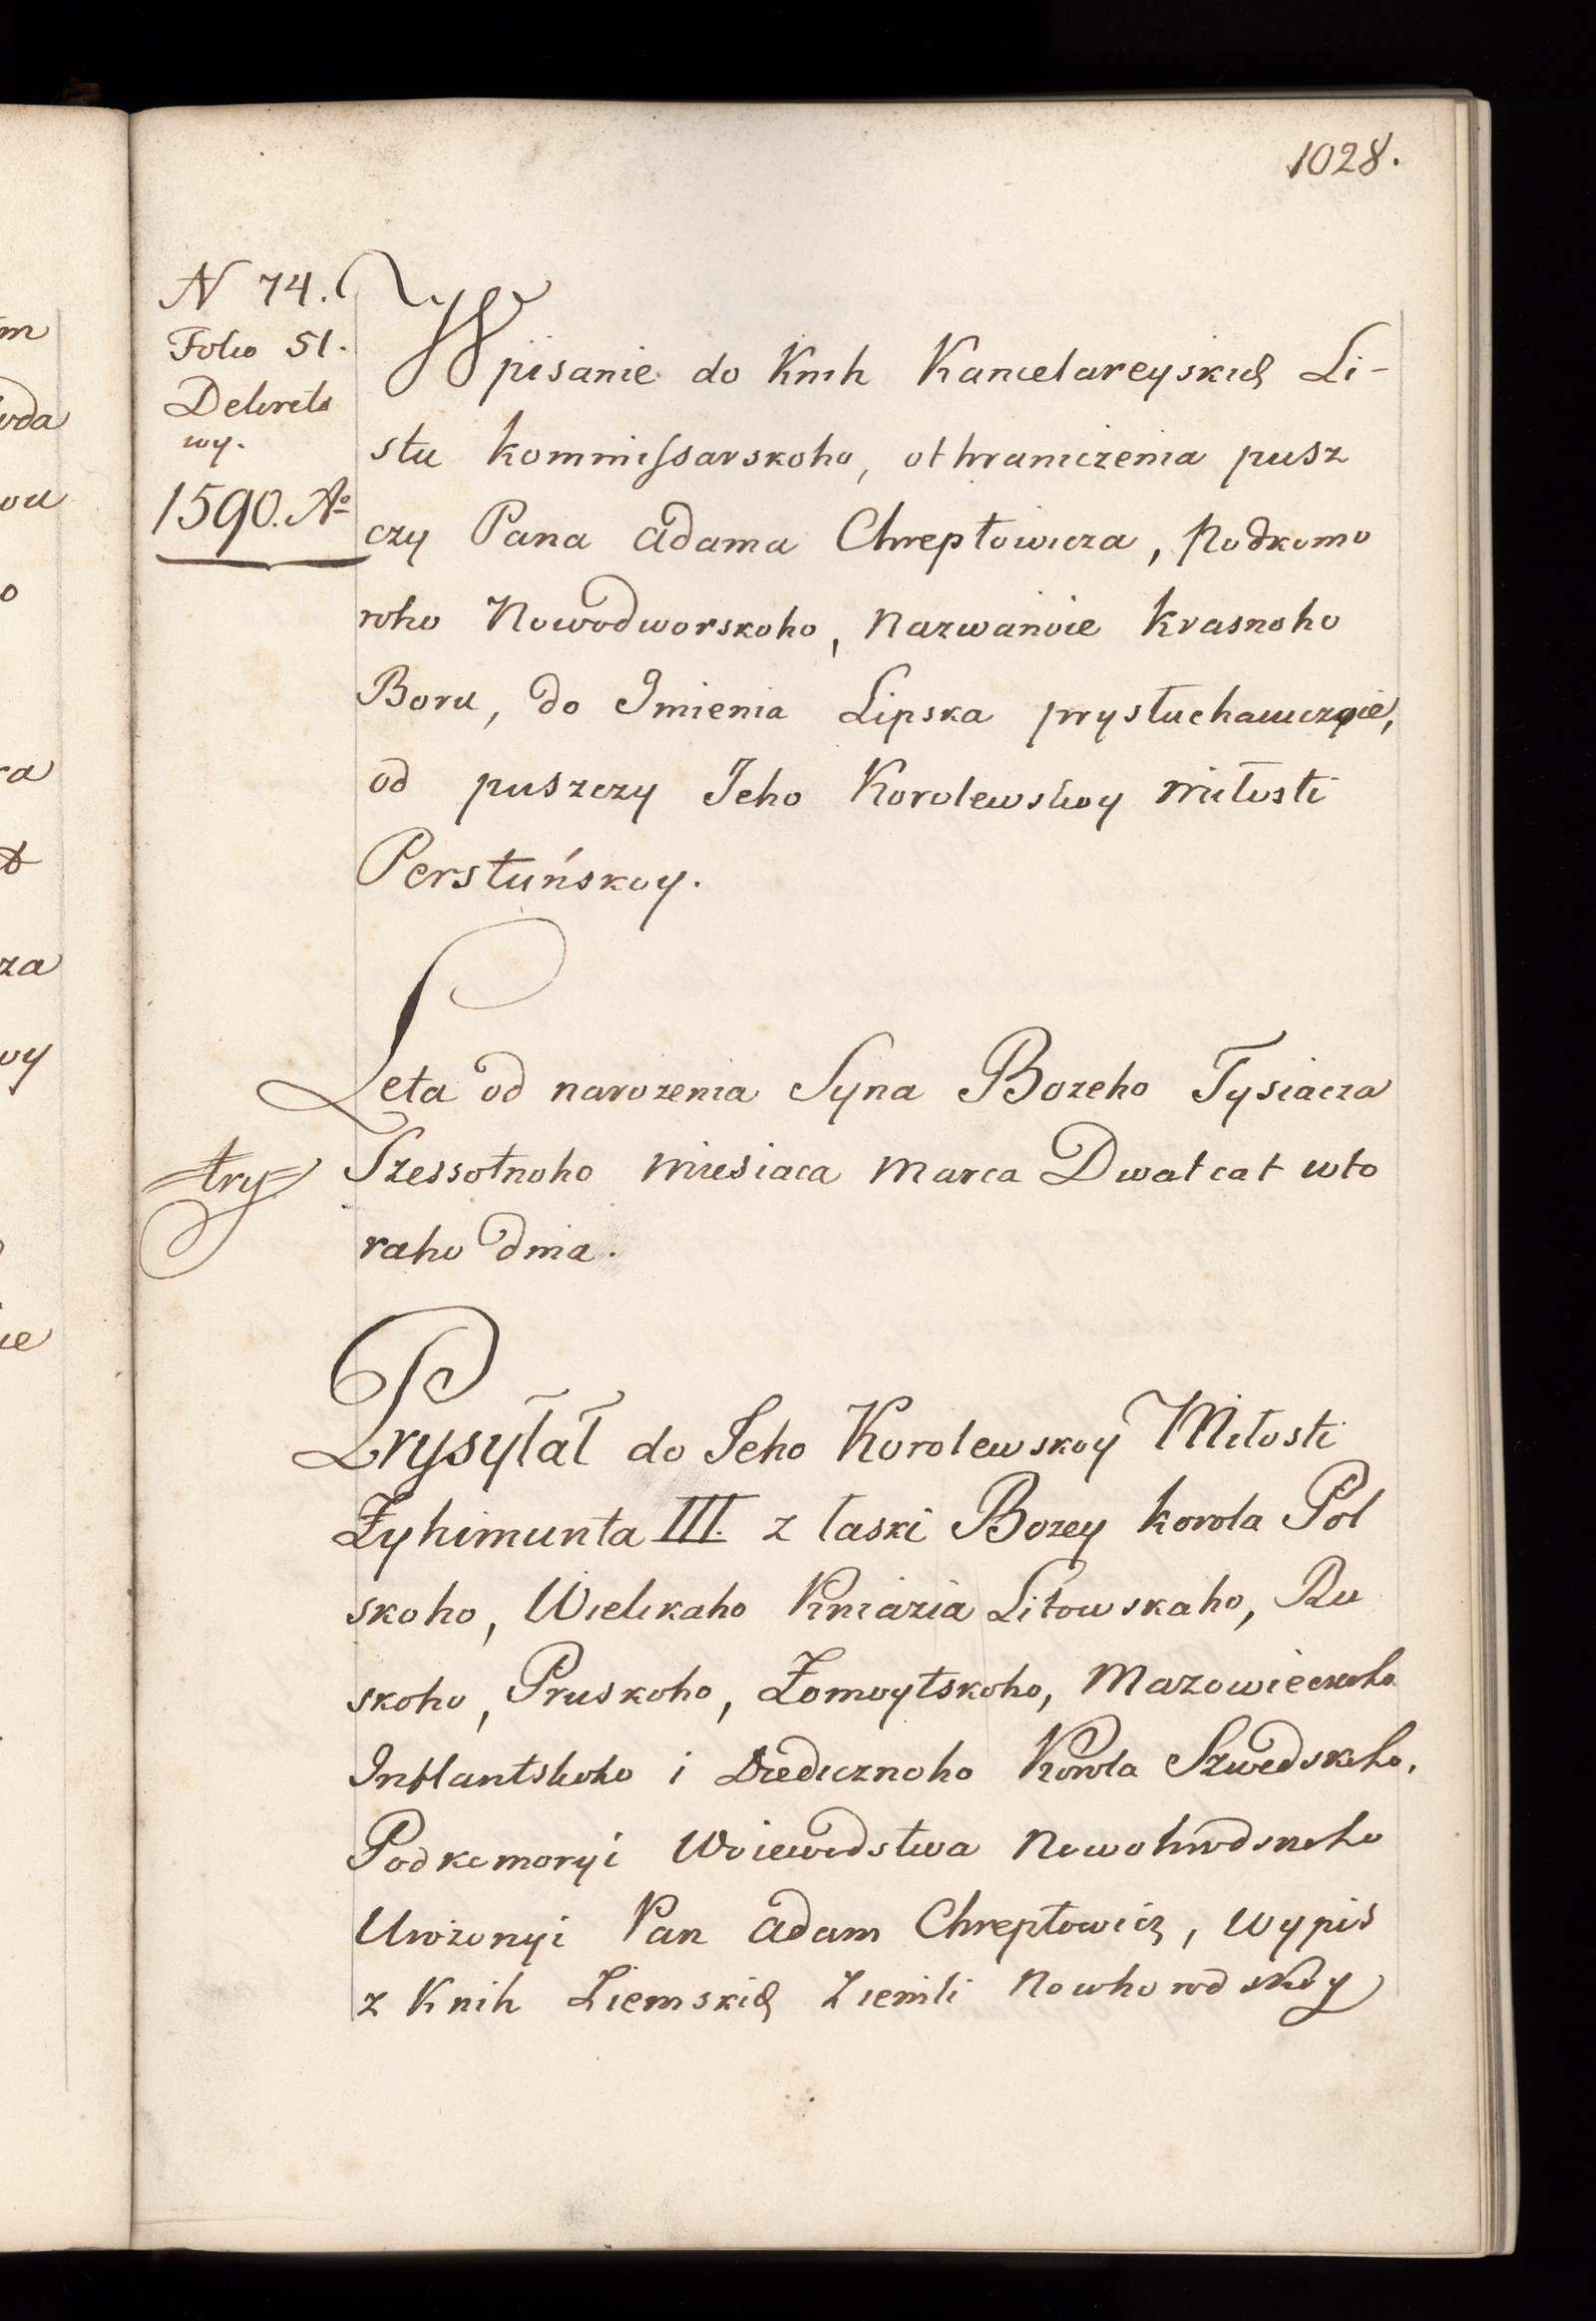 1028.
N 74.
Folio 51.
Dekreto
wy.
1590. Aº
Wpisanie do Knih Kancelareyskich Li-
stu kommissarskoho, othraniczenia pusz
czy Pana Adama Chreptowicza, Podkomo
roho Nowodworskoho, Nazwanoie Krasnoho
Boru, do Imienia Lipska prysłuchaiuczoie,
od puszczy Jeho Korolewskoy miłosti
Perstuńskoy.
Leta od narozenia Syna Bozeho Tysiacza
try
Szessotnoho miesiaca Marca Dwatcat wto
raho dnia.
Prysyłał do Jeho Korolewskoy Miłosti
Zyhimunta III. z łaski Bozey korola Pol
skoho, Wielikaho Kniazia Litowskaho, Ru
skoho, Pruskoho, Żomoytskoho, Mazowieckoho
Inflantskoho i Dziedicznoho Korola Szwedskoho.
Podkomoryi Woiewodstwa Nowohrodskoho
Urożonyi Pan Adam Chreptowicz, wypis
z Knih Ziemskich Ziemli Nowhorodskoy